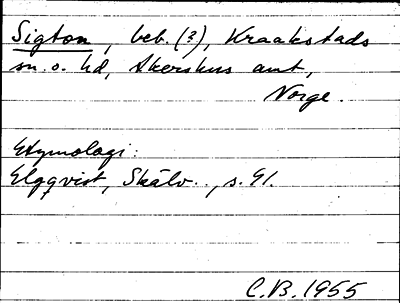 Sigton, beb. (?), Kraakstads
sn. o. hd, Akershus amt,
Norge.
Etymologi:
Elgqvist, Skälv.., s. 91.
C.B. 1955